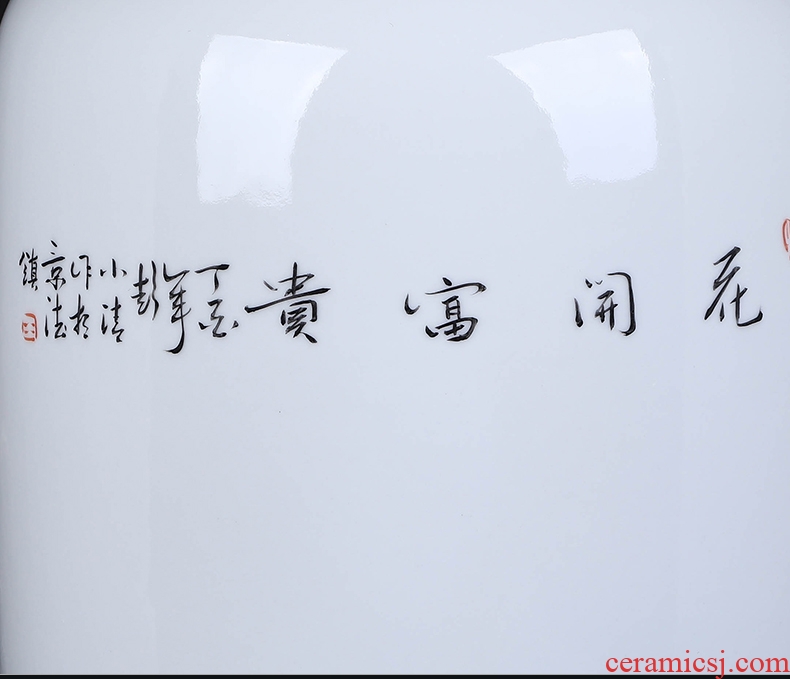 花開富貴
丁酉
年
彭
小清
作於
景德
鎮
ceramicsj.com